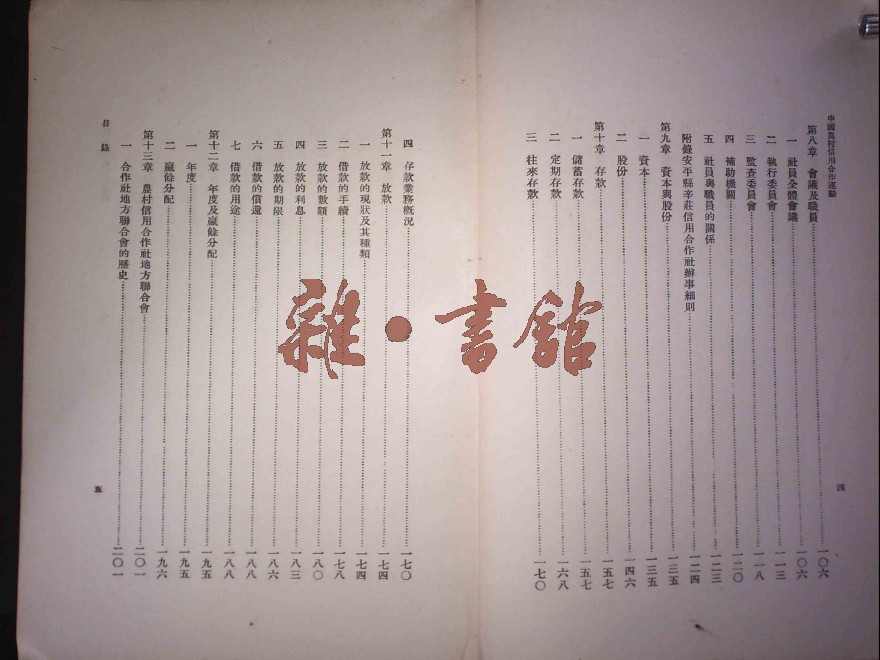 中國農村信用合作運動
第八章 會議及職員……一〇六
一 社員全體會議……一〇六
二 執行委員會……一一三
三 監查委員會……一一八
四 補助機關……一二〇
五 社員與職員的關係……一二三
附錄安平縣辛莊信用合作社辦事細則……一二四
第九章 資本與股份……一三五
一 資本……一三五
二 股份……一四六
第十章 存款……一五七
一 儲蓄存款……一五七
二 定期存款……一六八
三 往來存款……一七〇
四
四 存款業務概況……一七〇
第十一章 放款……一七四
一 放款的現狀及其種類……一七四
二 借款的手續……一七八
三 放款的數額……一八〇
四 放款的利息……一八三
五 放款的期限……一八六
六 借款的償還……一八八
七 借款的用途……一八八
第十二章 年度及贏餘分配……一九五
一 年度……一九五
二 贏餘分配……一九六
第十三章 農村信用合作社地方聯合會……二〇一
一 合作社地方聯合會的歷史……二〇一
目錄
五
雜·書館